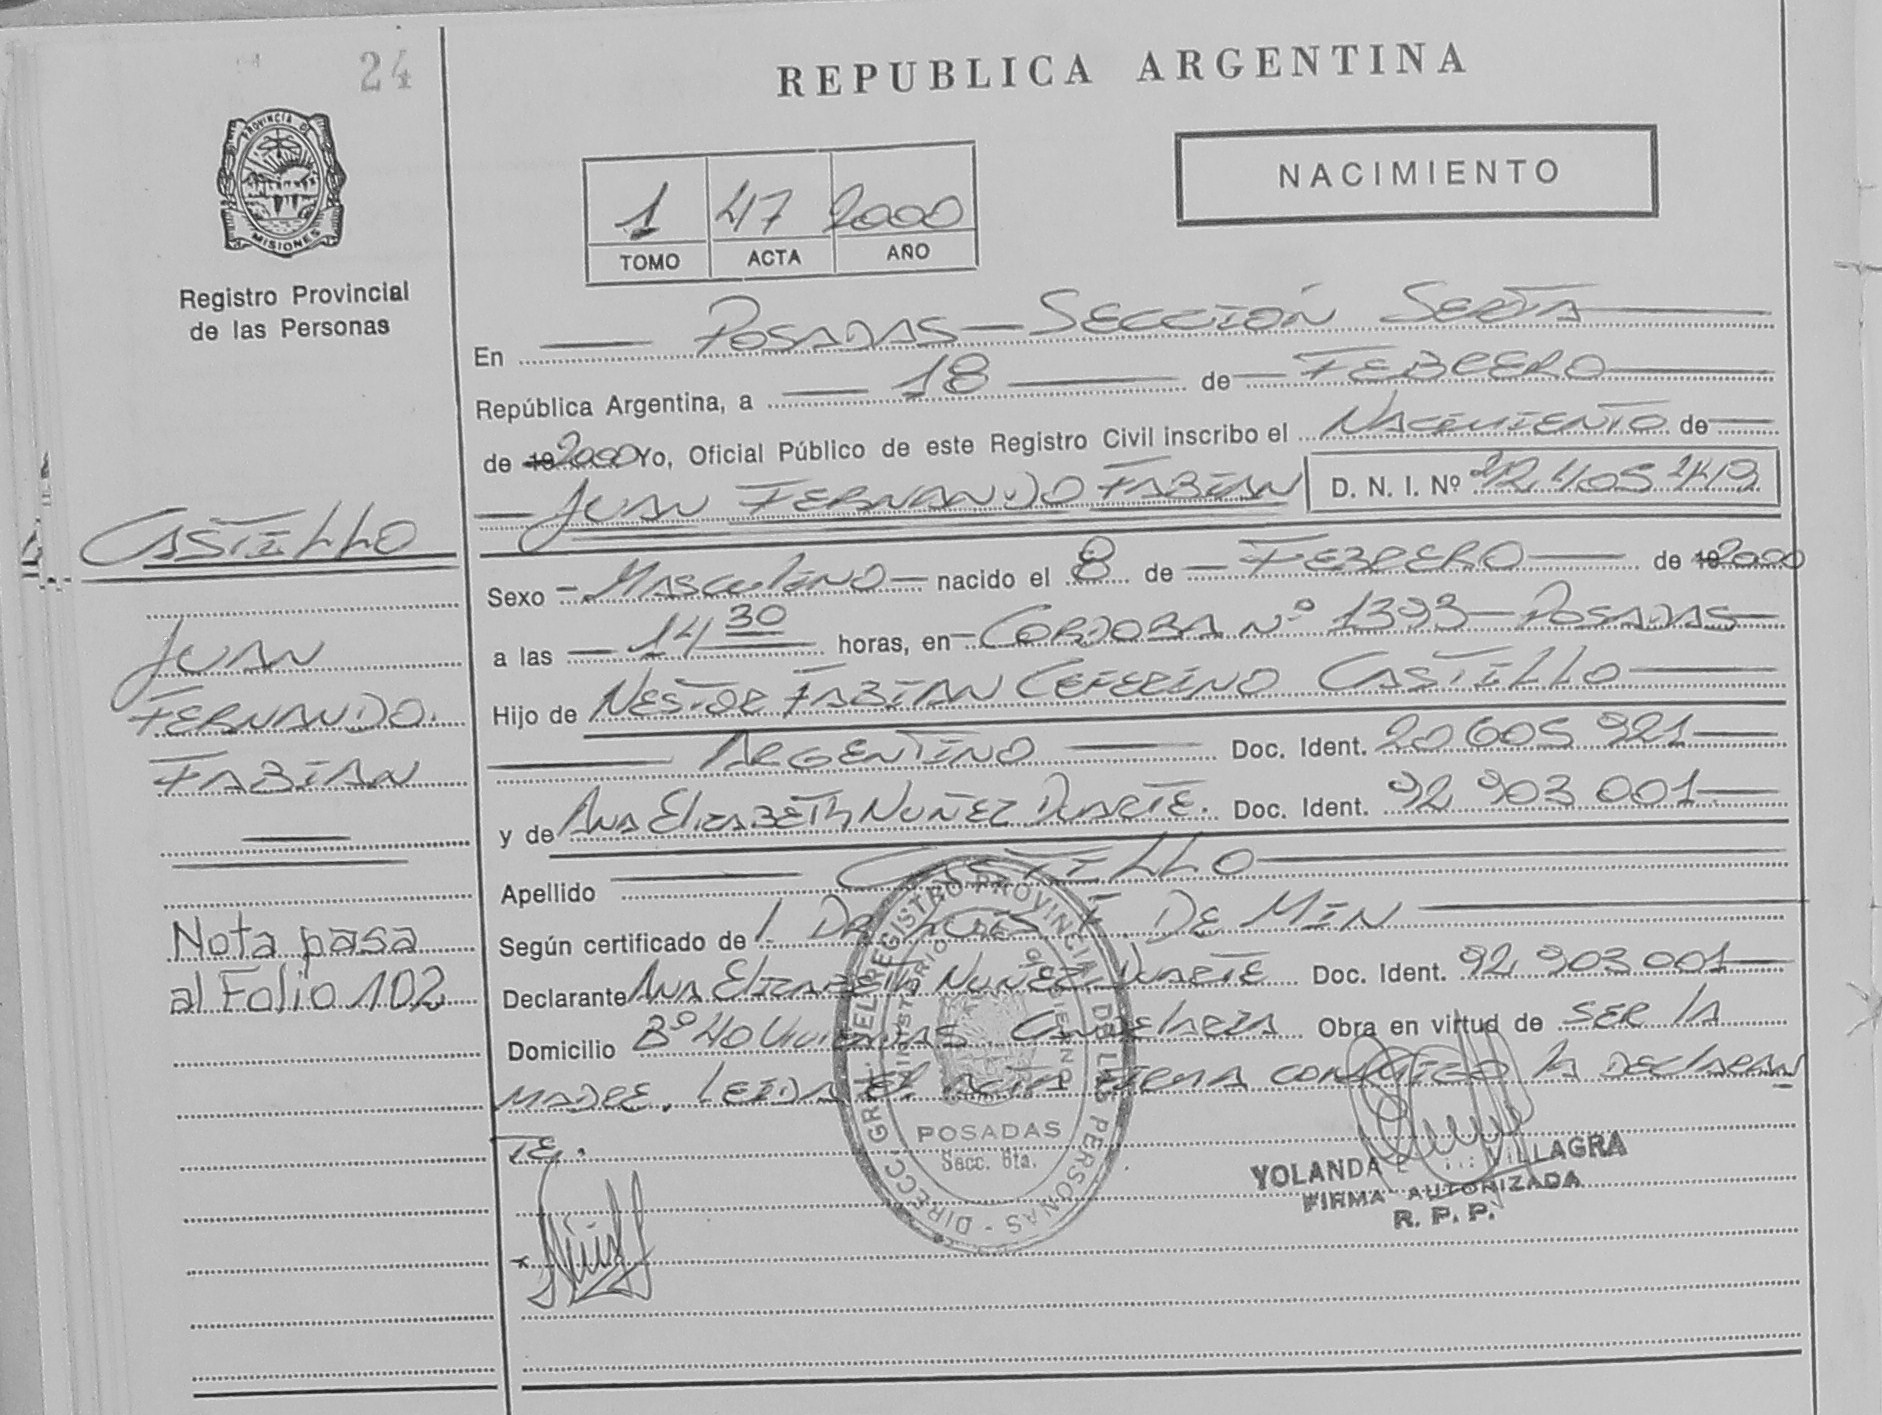 24
PROVINCIA DE
MISIONES
Registro Provincial
de las Personas
CASTILLO
JUAN
FERNANDO
FABIAN
Nota pasa
al Folio 102
REPUBLICA ARGENTINA
NACIMIENTO
1 47 2000
TOMO ACTA AÑO
En POSADAS - SECCIÓN SEXTA
República Argentina, a 18 de FEBRERO
de 2000 Yo, Oficial Público de este Registro Civil inscribo el NACIMIENTO de
JUAN FERNANDO FABIAN D. N. I. Nº
Sexo MASCULINO nacido el 8 de FEBRERO de 2000
a las 14 30 horas, en CORDOBA Nº 1393 - POSADAS
Hijo de NESTOR FABIAN CEFERINO CASTILLO
ARGENTINO Doc. Ident. 20 605 921
y de ANA ELIZABETH NUÑEZ DUARTE. Doc. Ident. 92 903 001
Apellido CASTILLO
Según certificado de DE MIN
Declarante ANA ELIZABETH NUÑEZ DUARTE Doc. Ident. 92 903 001
Domicilio Bº 40 VIVIENDAS CANDELARIA Obra en virtud de SER LA
MADRE. LEIDA EL ACTA FIRMA CONMIGO LA DECLARAN
TE.
DIRECC. GRAL. DEL REGISTRO PROVINCIAL DE LAS PERSONAS
MINISTERIO DE GOBIERNO
POSADAS
Secc. 6ta.
YOLANDA VILLAGRA
FIRMA AUTORIZADA
R. P. P.